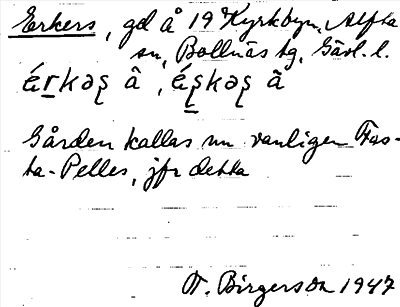 Erkers, gd å 19 Kyrkbyn, Alfta
sn, Bollnäs tg, Gävl. l.
Gården kallas nu vanligen Fas-
ta-Pelles, jfr detta
W. Birgerson 1947